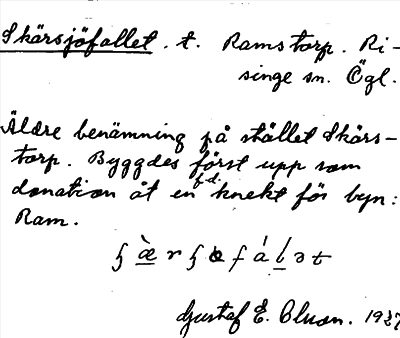 Skärsjöfallet. t. Ramstorp. Ri-
singe sn. Ögl.
Äldre benämning på stället Skärs-
torp. Byggdes först upp som
donation åt en f.d. knekt för byn:
Ram.
Gustaf E.